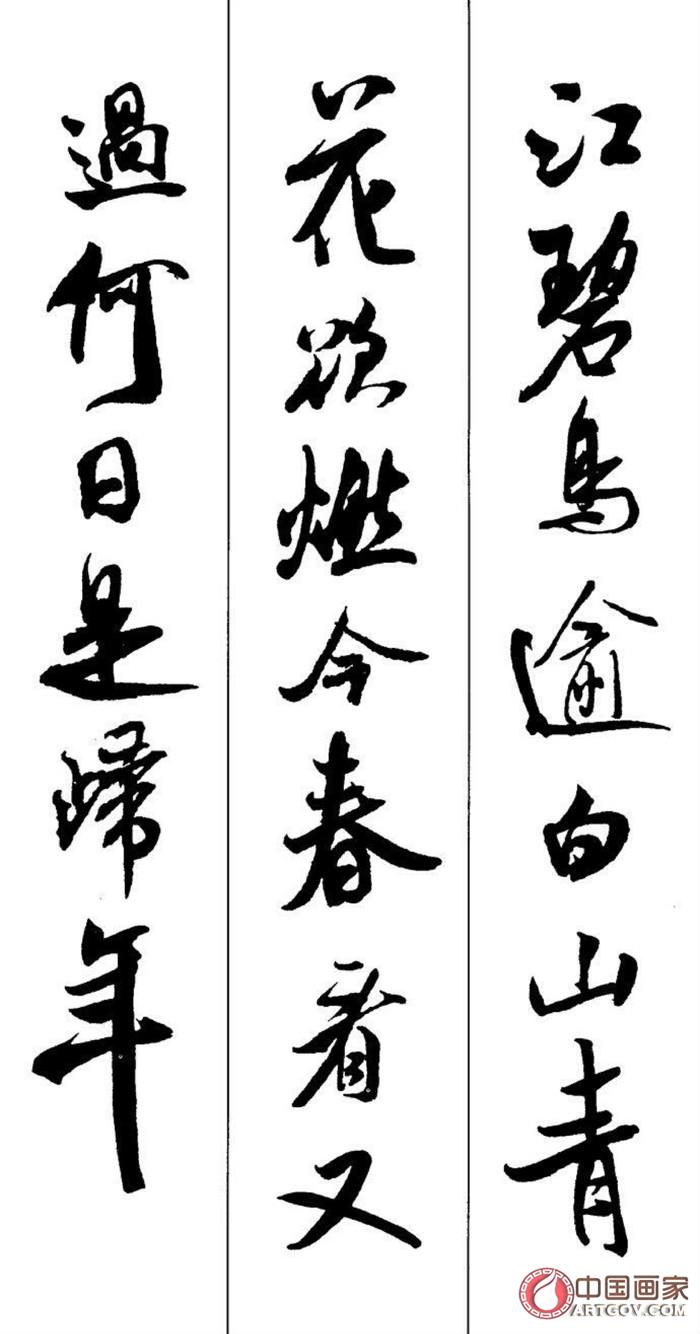 江碧鳥逾白山青
花欲燃今春看又
過何日是歸年
中国画家
ARTGOV.COM